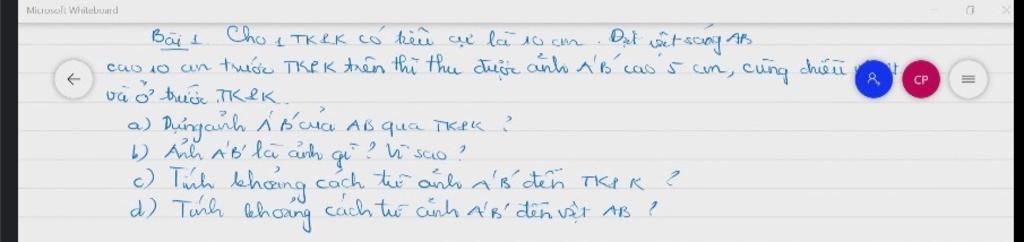 Microsoft Whiteboard
Bài 1 Cho 1 TKPK có tiêu cự là 10 cm. Đặt vật sáng AB
cao 10 cm trước TKPK trên thì thu được ảnh A'B' cao 5 cm, cùng chiều
CP
và ở trước TKPK.
a) Dựng ảnh A'B' của AB qua TKPK ?
b) Ảnh A'B' là ảnh gì ? Vì sao ?
c) Tính khoảng cách từ ảnh A'B' đến TKPK ?
d) Tính khoảng cách từ ảnh A'B' đến vật AB ?